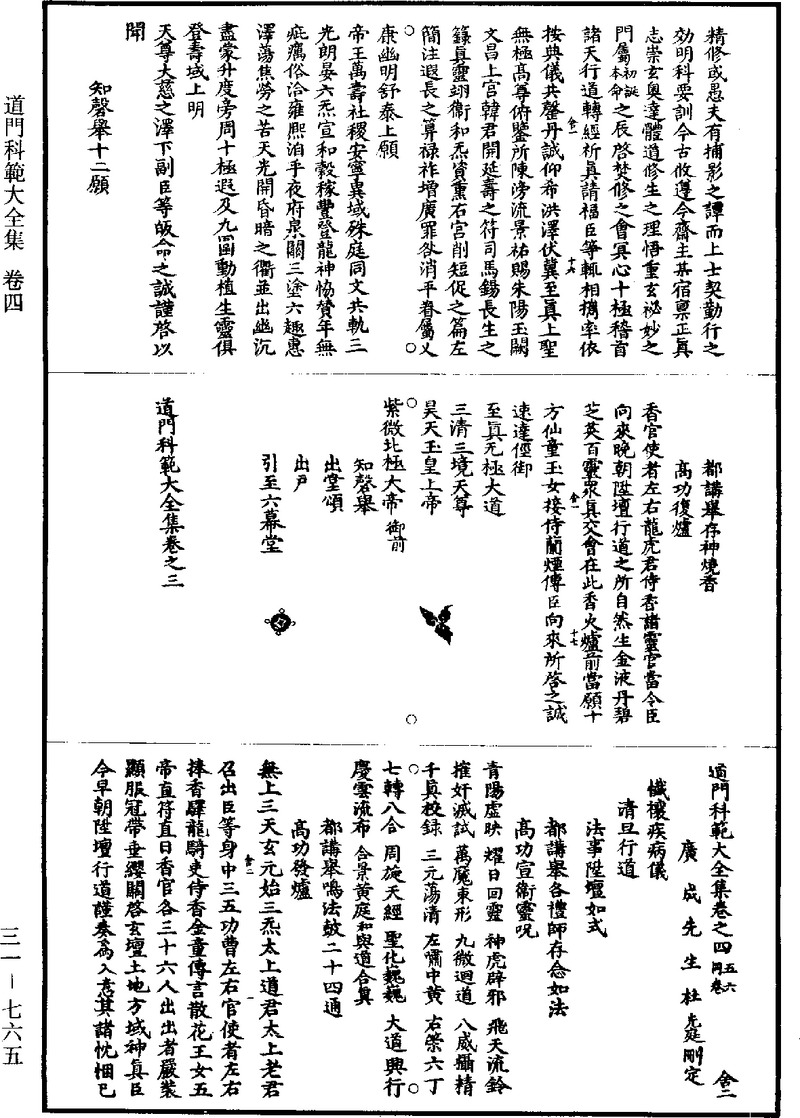 道門科範大全集 卷四
三一－七六五
精修或愚夫有捕影之譚而上士契勤行之
効明科要訓今古攸遵今齋主某宿稟正真
志崇玄奧達體道修生之理悟重玄祕妙之
門屬初誕本命之辰啓焚修之會冥心十極稽首
諸天行道轉經祈真請福臣等輒相攜率依
按典儀共罄丹誠仰希洪澤伏冀至真上聖
無極高尊俯鑒所陳滂流景祐賜朱陽玉闕
文昌上宫韓君開延壽之符司馬錫長生之
籙真靈翊衛和炁資熏右宮削短促之篇左
簡注遐長之筭祿祚增廣罪咎消平眷屬乂
康幽明舒泰上願
帝王萬壽社稷安寧異域殊庭同文共軌三
光朗晏六炁宣和穀稼豐登龍神協贊年無
疵癘俗洽雍熙洎乎夜府泉關三塗六趣惠
澤蕩焦勞之苦天光開昏暗之衢並出幽沉
盡蒙升度旁周十極遐及九圍動植生靈俱
登壽域上明
天尊大慈之澤下副臣等皈命之誠謹啓以
聞
知磬舉十二願
都講舉存神燒香
高功復爐
香官使者左右龍虎君侍香諸靈官當令臣
向來晚朝陞壇行道之所自然生金液丹碧
芝英百靈衆真交會在此香火爐前當願十
方仙童玉女接侍蘭煙傳臣向來所啓之誠
速達徑御
至真无極大道
三清三境天尊
昊天玉皇上帝
紫微北極大帝 御前
知磬舉
出堂頌
出戶
引至六幕堂
道門科範大全集卷之三
道門科範大全集卷之四 五六同卷 舍二
廣成先生杜光庭刪定
懺禳疾病儀
清旦行道
法事陞壇如式
都講舉各禮師存念如法
高功宣衛靈呪
青陽虛映 耀日回靈 神虎辟邪 飛天流鈴
摧奸滅試 萬魔束形 九微迴道 八威攝精
千真校錄 三元蕩清 左嘯中黃 右策六丁
七轉八合 周旋天經 聖化巍巍 大道興行
慶雲流布 合景黃庭 和與道合真
都講舉鳴法鼓二十四通
高功發爐
無上三天玄元始三炁太上道君太上老君
召出臣等身中三五功曹左右官使者左右
捧香驛龍騎吏侍香金童傳言散花玉女五
帝直符直日香官各三十六人出出者嚴裝
顯服冠帶垂纓關啓玄壇土地方域神真臣
今早朝陞壇行道謹奏為入意其諸忱悃已